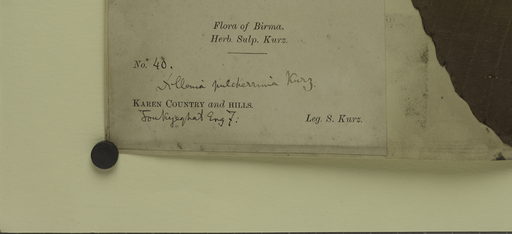 Flora of Birma.
Herb. Sulp. Kurz.
No. 40.
Dillenia pulcherrima Kurz.
KAREN COUNTRY and HILLS.
Toukyeghat Eng 7.
Leg. S. Kurz.